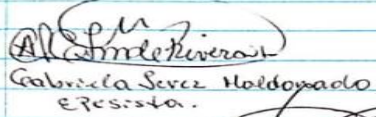 Gabriela Serez Maldonado
EPesista.